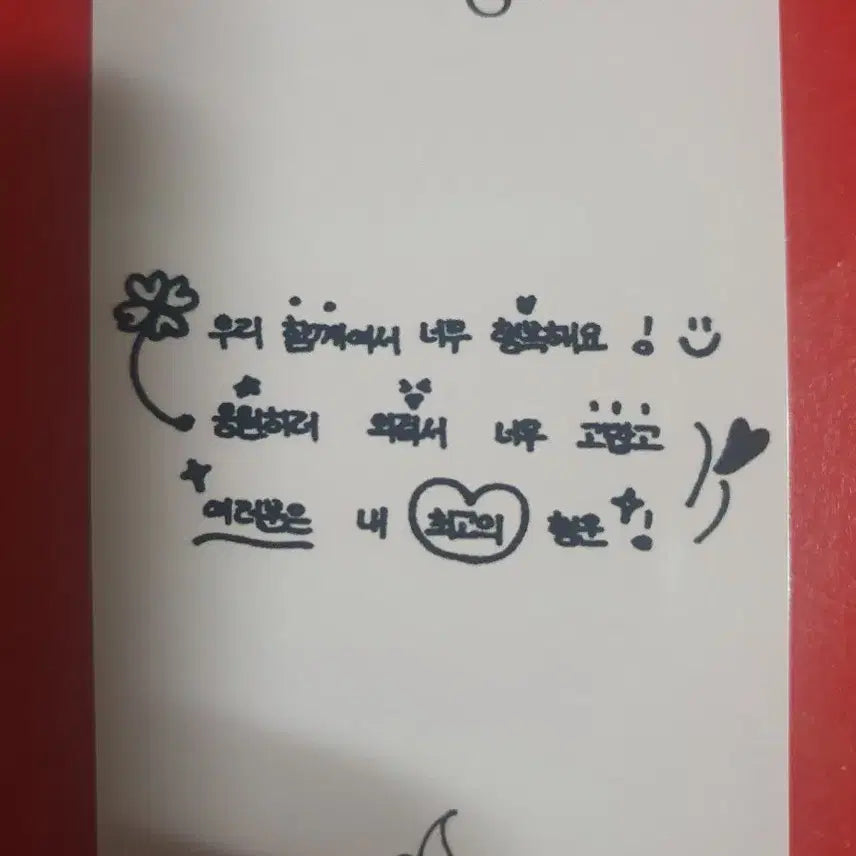 우리 함께여서 너무 행복해요!
응원하러 와줘서 너무 고맙고
여러분은 내 최고의 행운!